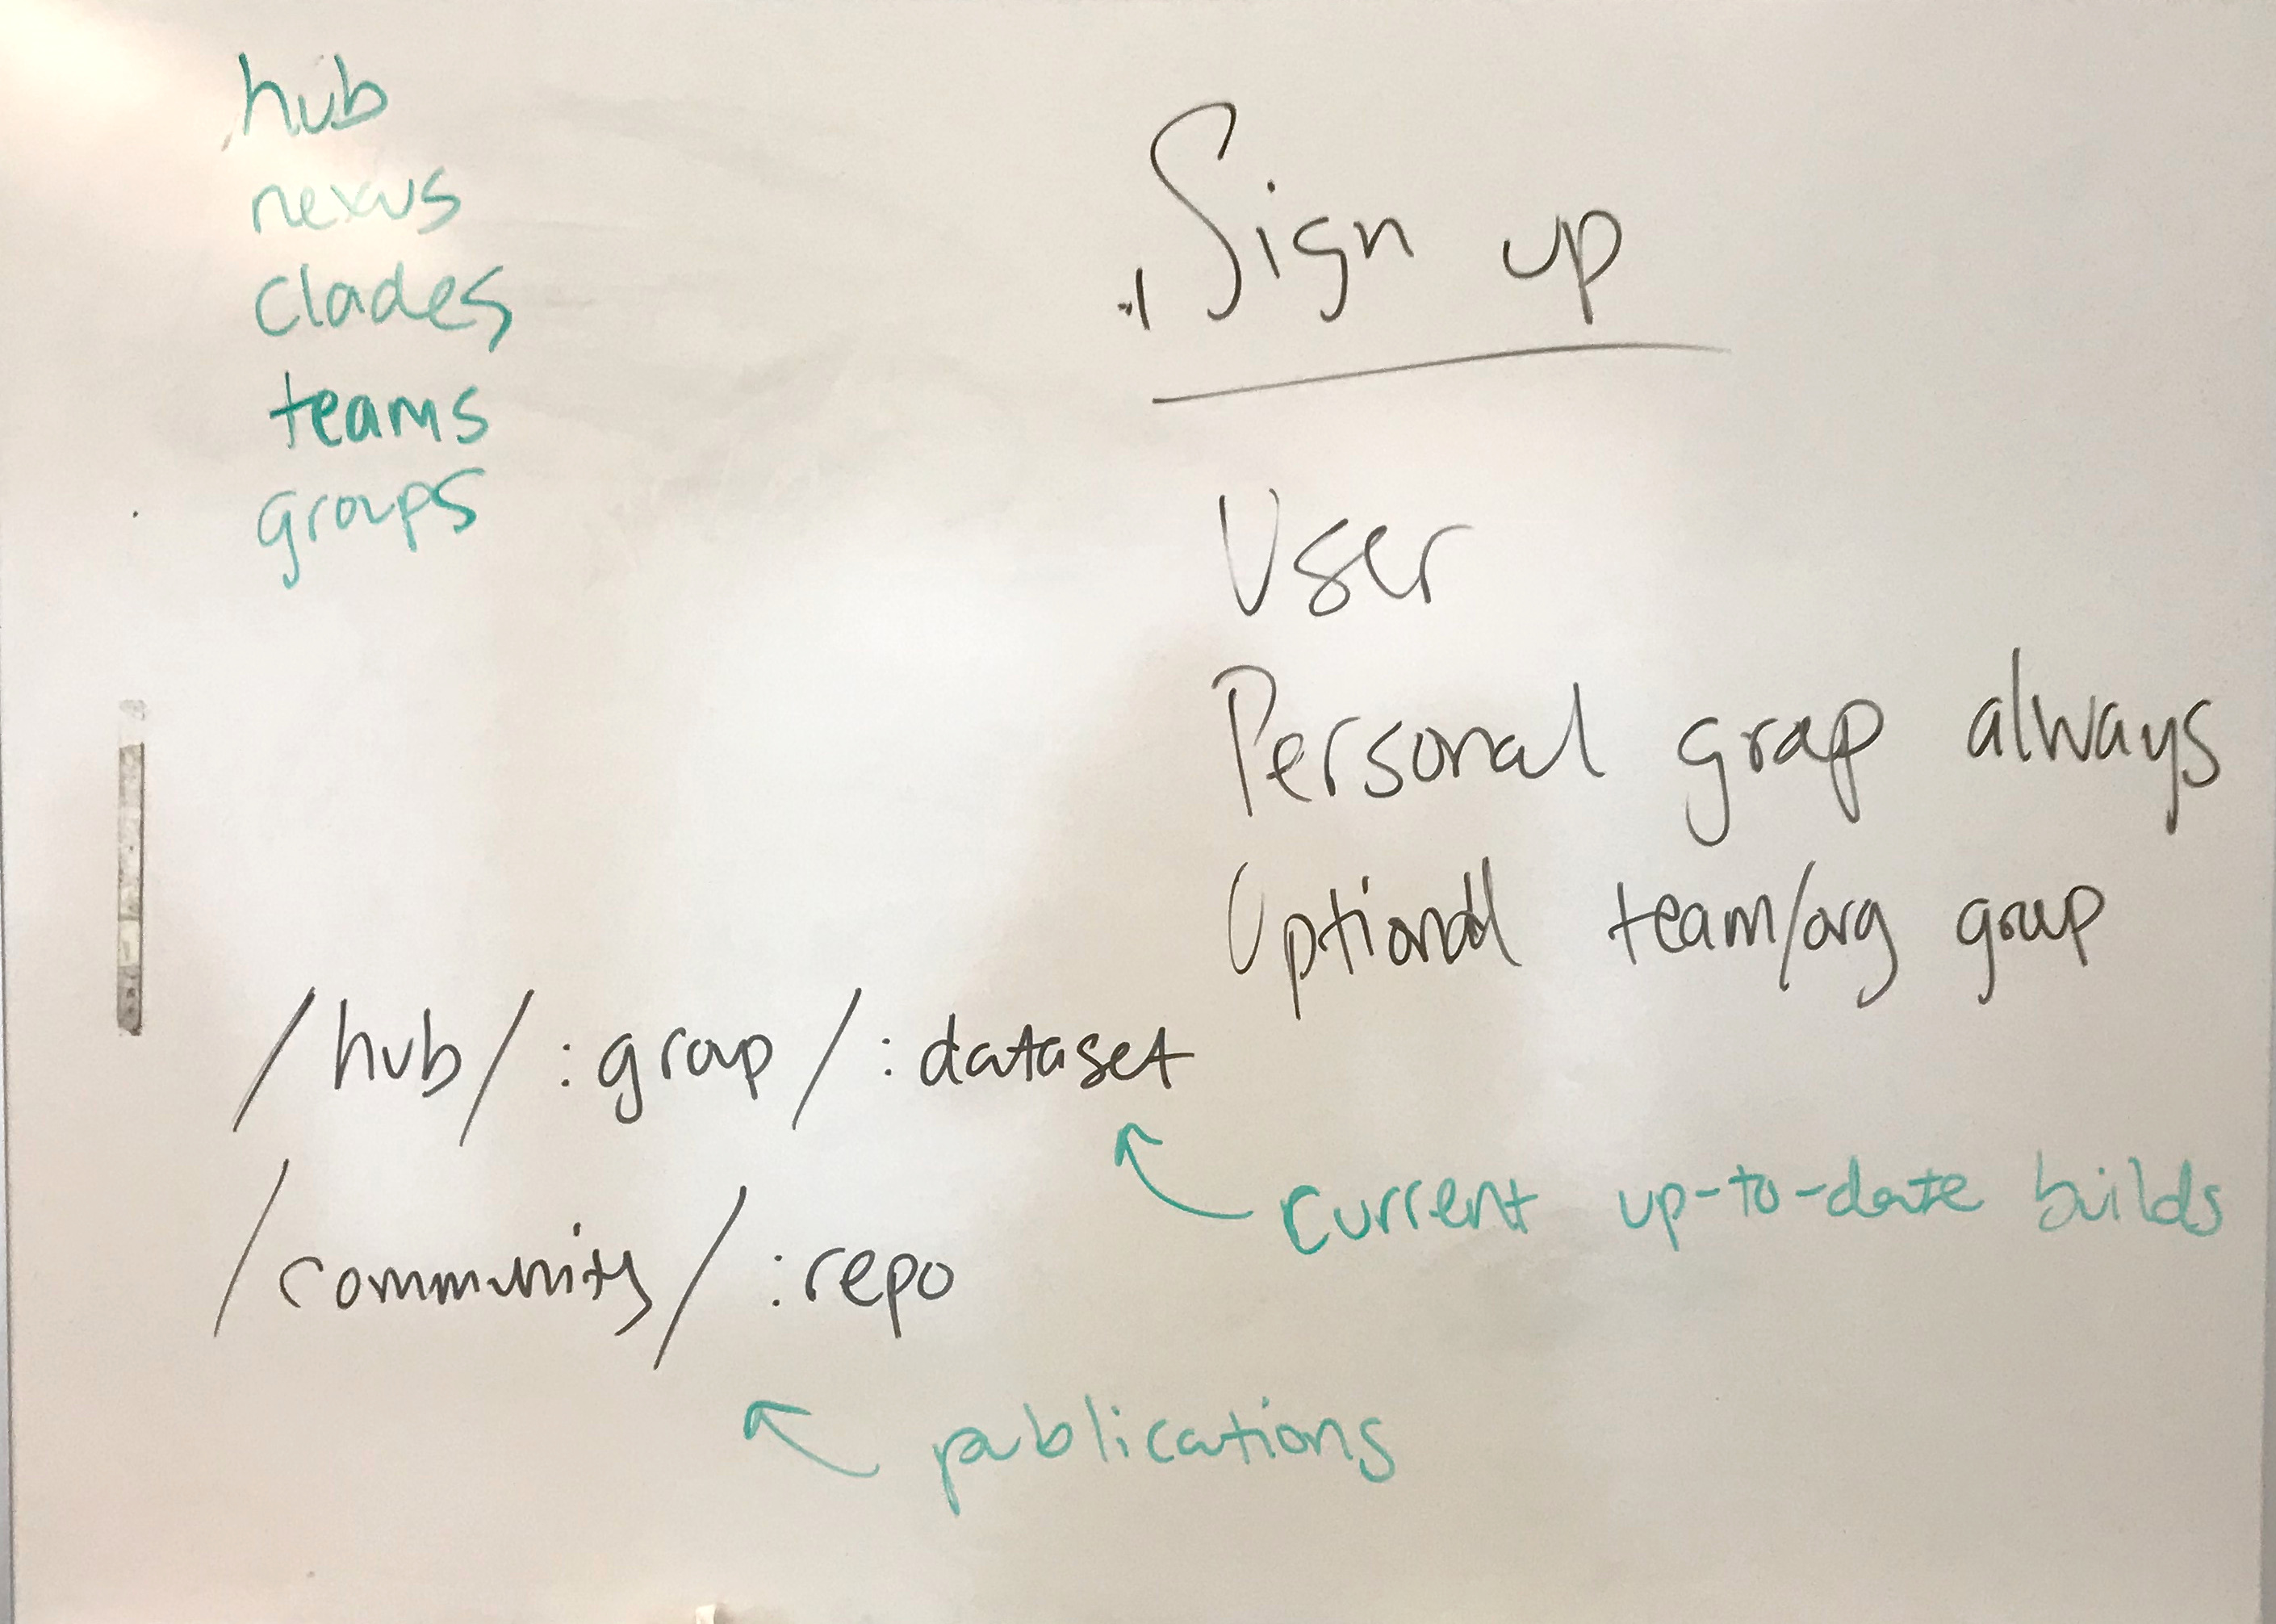 hub
nexus
clades
teams
groups
Sign up
User
Personal group always
Optional team/org group
/hub/:group/:dataset
current up-to-date builds
/community/:repo
publications